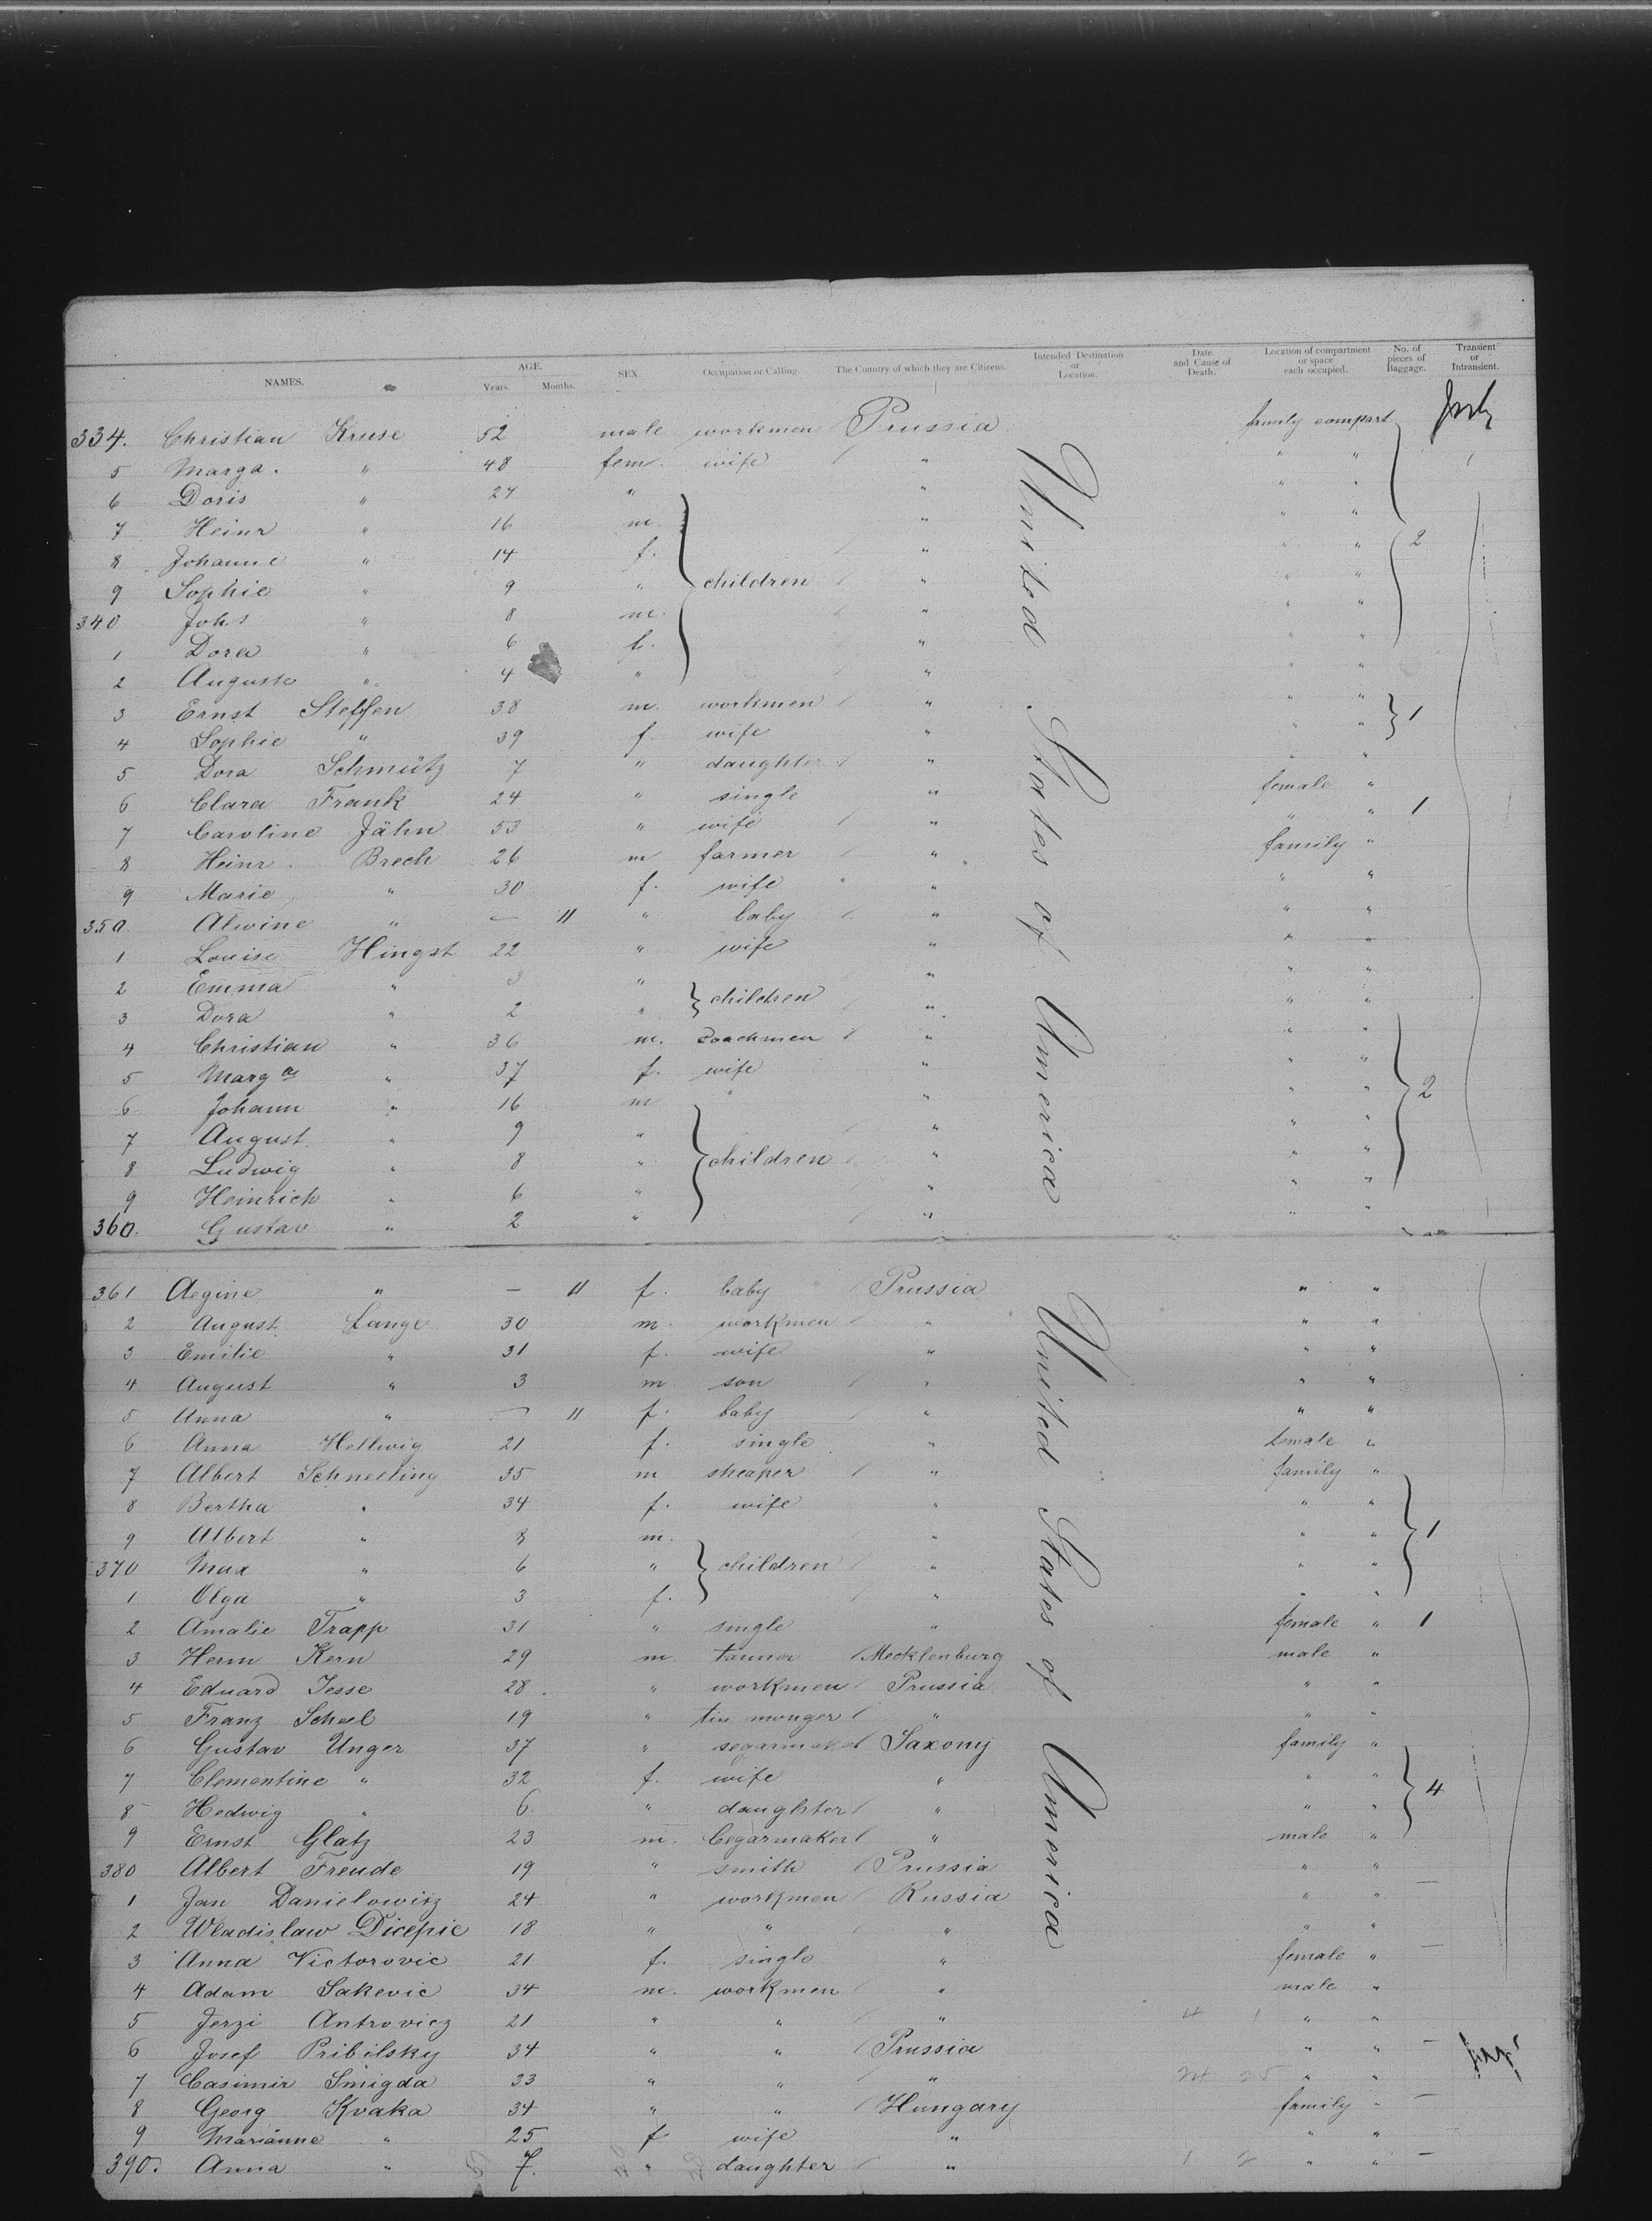 NAMES. AGE. Years. Months. SEX. Occupation or Calling. The Country of which they are Citizens. Intended Destination or Location. Date and Cause of Death. Location of compartment or space each occupied. No. of pieces of Baggage. Transient or Intransient.
334. Christian Kruse 52 male workmen Prussia family compart
5 Marga. " 48 fem. wife " " "
6 Doris " 24 " " " "
7 Heinr " 16 m. " " "
8 Johanne " 14 f. " " " 2
9 Sophie " 9 " children " " "
340 Johs " 8 m. " " "
1 Dora " 6 f. " " "
2 Auguste " 4 " " " "
3 Ernst Steffen 38 m. workmen " " " 1
4 Sophie " 39 f wife " " "
5 Dora Schmütz 7 " daughter " " "
6 Clara Frank 24 " single " female "
7 Caroline Jähn 53 " wife " " " 1
8 Heinr. Brech 26 m farmer " family "
9 Marie " 30 f. wife " " "
350 Alwine " — 11 " baby " " "
1 Louise Hingst 22 " wife " " "
2 Emma " 3 " children " " "
3 Dora " 2 " " " "
4 Christian " 36 m. coachmen " " "
5 Marga " 37 f. wife " " "
6 Johann " 16 m " " " " 2
7 August " 9 " " " "
8 Ludwig " 8 " children " " "
9 Heinrich " 6 " " " "
360. Gustav " 2 " " " "
United States of America
361 Aegine " — 11 f. baby Prussia " "
2 August Lange 30 m. workmen " " "
3 Emilie " 31 f. wife " " "
4 August " 3 m son " " "
5 Anna " — 11 f. baby " " "
6 Anna Hellwig 21 f. single " female "
7 Albert Schneeling 35 m sheaper " family "
8 Bertha " 34 f. wife " " "
9 Albert " 8 m. " " " 1
370 Max " 6 " children " " "
1 Olga " 3 f. " " "
2 Amalie Trapp 31 " single " female " 1
3 Herm Kern 29 m. tanner Mecklenburg male "
4 Eduard Jesse 28 " workmen Prussia " "
5 Franz Scheel 19 " tin monger " " "
6 Gustav Unger 37 " segarmaker Saxony family "
7 Clementine " 32 f. wife " " "
8 Hedwig " 6. " daughter " " " 4
9 Ernst Glatz 23 m. Cegarmaker " male "
380 Albert Freude 19 " smith Prussia " "
1 Jan Danielowitz 24 " workmen Russia " " —
2 Wladislaw 18 " " " " "
3 Anna Victorovic 21 f. single " female " —
4 Adam Sakevic 34 m. workmen " male "
5 Jerzi Antrovicz 21 " " " " "
6 Josef Pribilsky 34 " " Prussia " " —
7 Casimir Smigda 33 " " " " "
8 Georg Kvaka 34 " " Hungary family " —
9 Marianne " 25 f wife " " "
390. Anna " 7. " daughter " " " —
United States of America